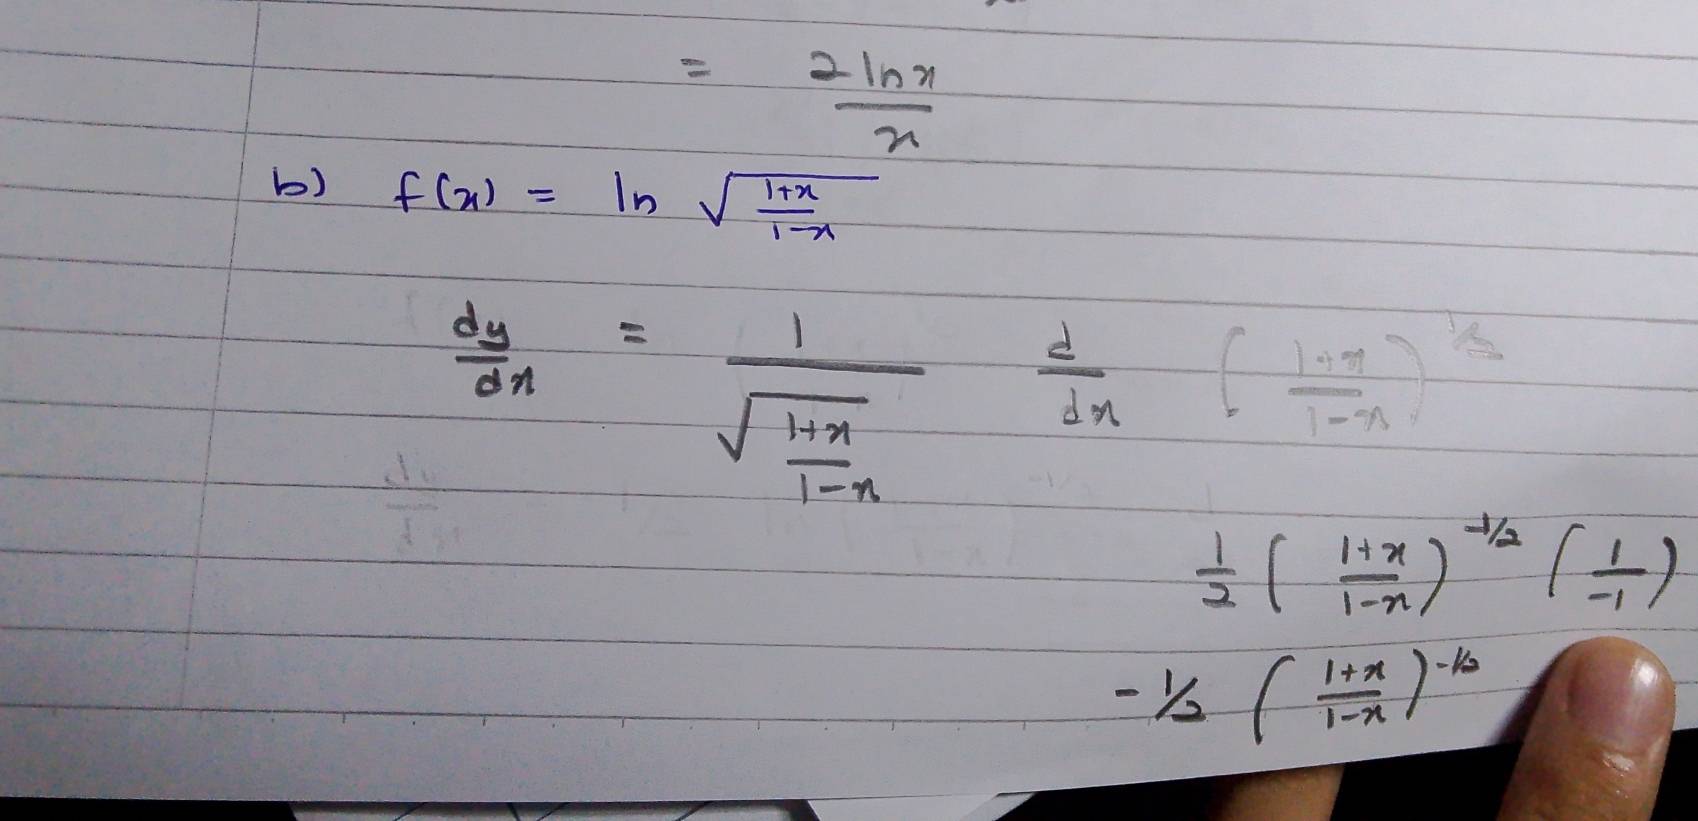 = 2 ln x / x
b) f(x) = ln √((1+x)/(1-x))
dy/dx = 1/√((1+x)/(1-x)) d/dx ((1+x)/(1-x))^1/2
1/2 ((1+x)/(1-x))^-1/2 (1/-1)
-1/2 ((1+x)/(1-x))^-1/2